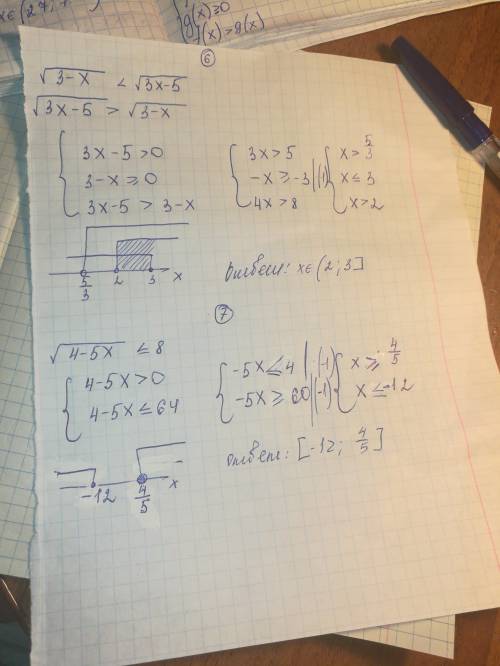 x∈(27;
g(x)≥0
f(x)>g(x)
6
√3-x < √3x-5
√3x-5 > √3-x
3x-5>0
3-x≥0
3x-5 > 3-x
3x>5
-x≥-3 |(1
4x>8
x>5/3
x≤3
x>2
5/3 2 3 x
Ответ: x∈(2;3]
7
√4-5x ≤8
4-5x>0
4-5x≤64
-5x≤4 | (-1)
-5x≥60 |(-1)
x≥4/5
x≤-12
-12 4/5 x
Ответ: [-12; 4/5]